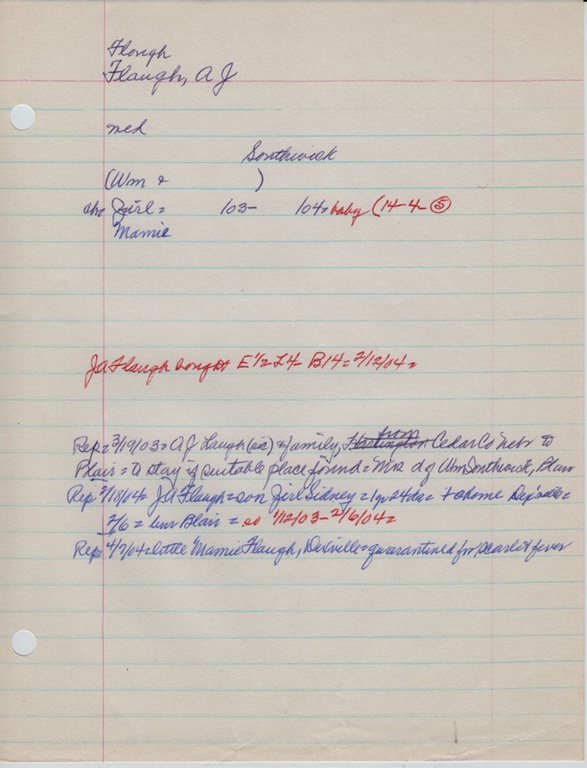 Flough
Flaugh, A J
med
Southwick
(Wm & )
chr Girl = 103- 104= baby (14-4- ⑤
Mamie
JA Flaugh bought E ½ L4- B14= 2/12/04=
Rep= 3/19/03= A J Laugh (sic) & family, from Cedar Co Nebr to
Blair= to stay if suitable place found= Mrs d of Wm Southwick, Blair
Rep 2/18/04= JA Flaugh= son Sidney= 1y 24da= + home
2/6= bur Blair = so 1/12/03-2/6/04=
Rep= 4/7/04= little Mamie Flaugh, = quarantined for scarlet fever